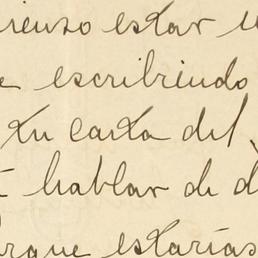 pienso estar
escribiendo
tu carta del
hablar de d
rque estarías